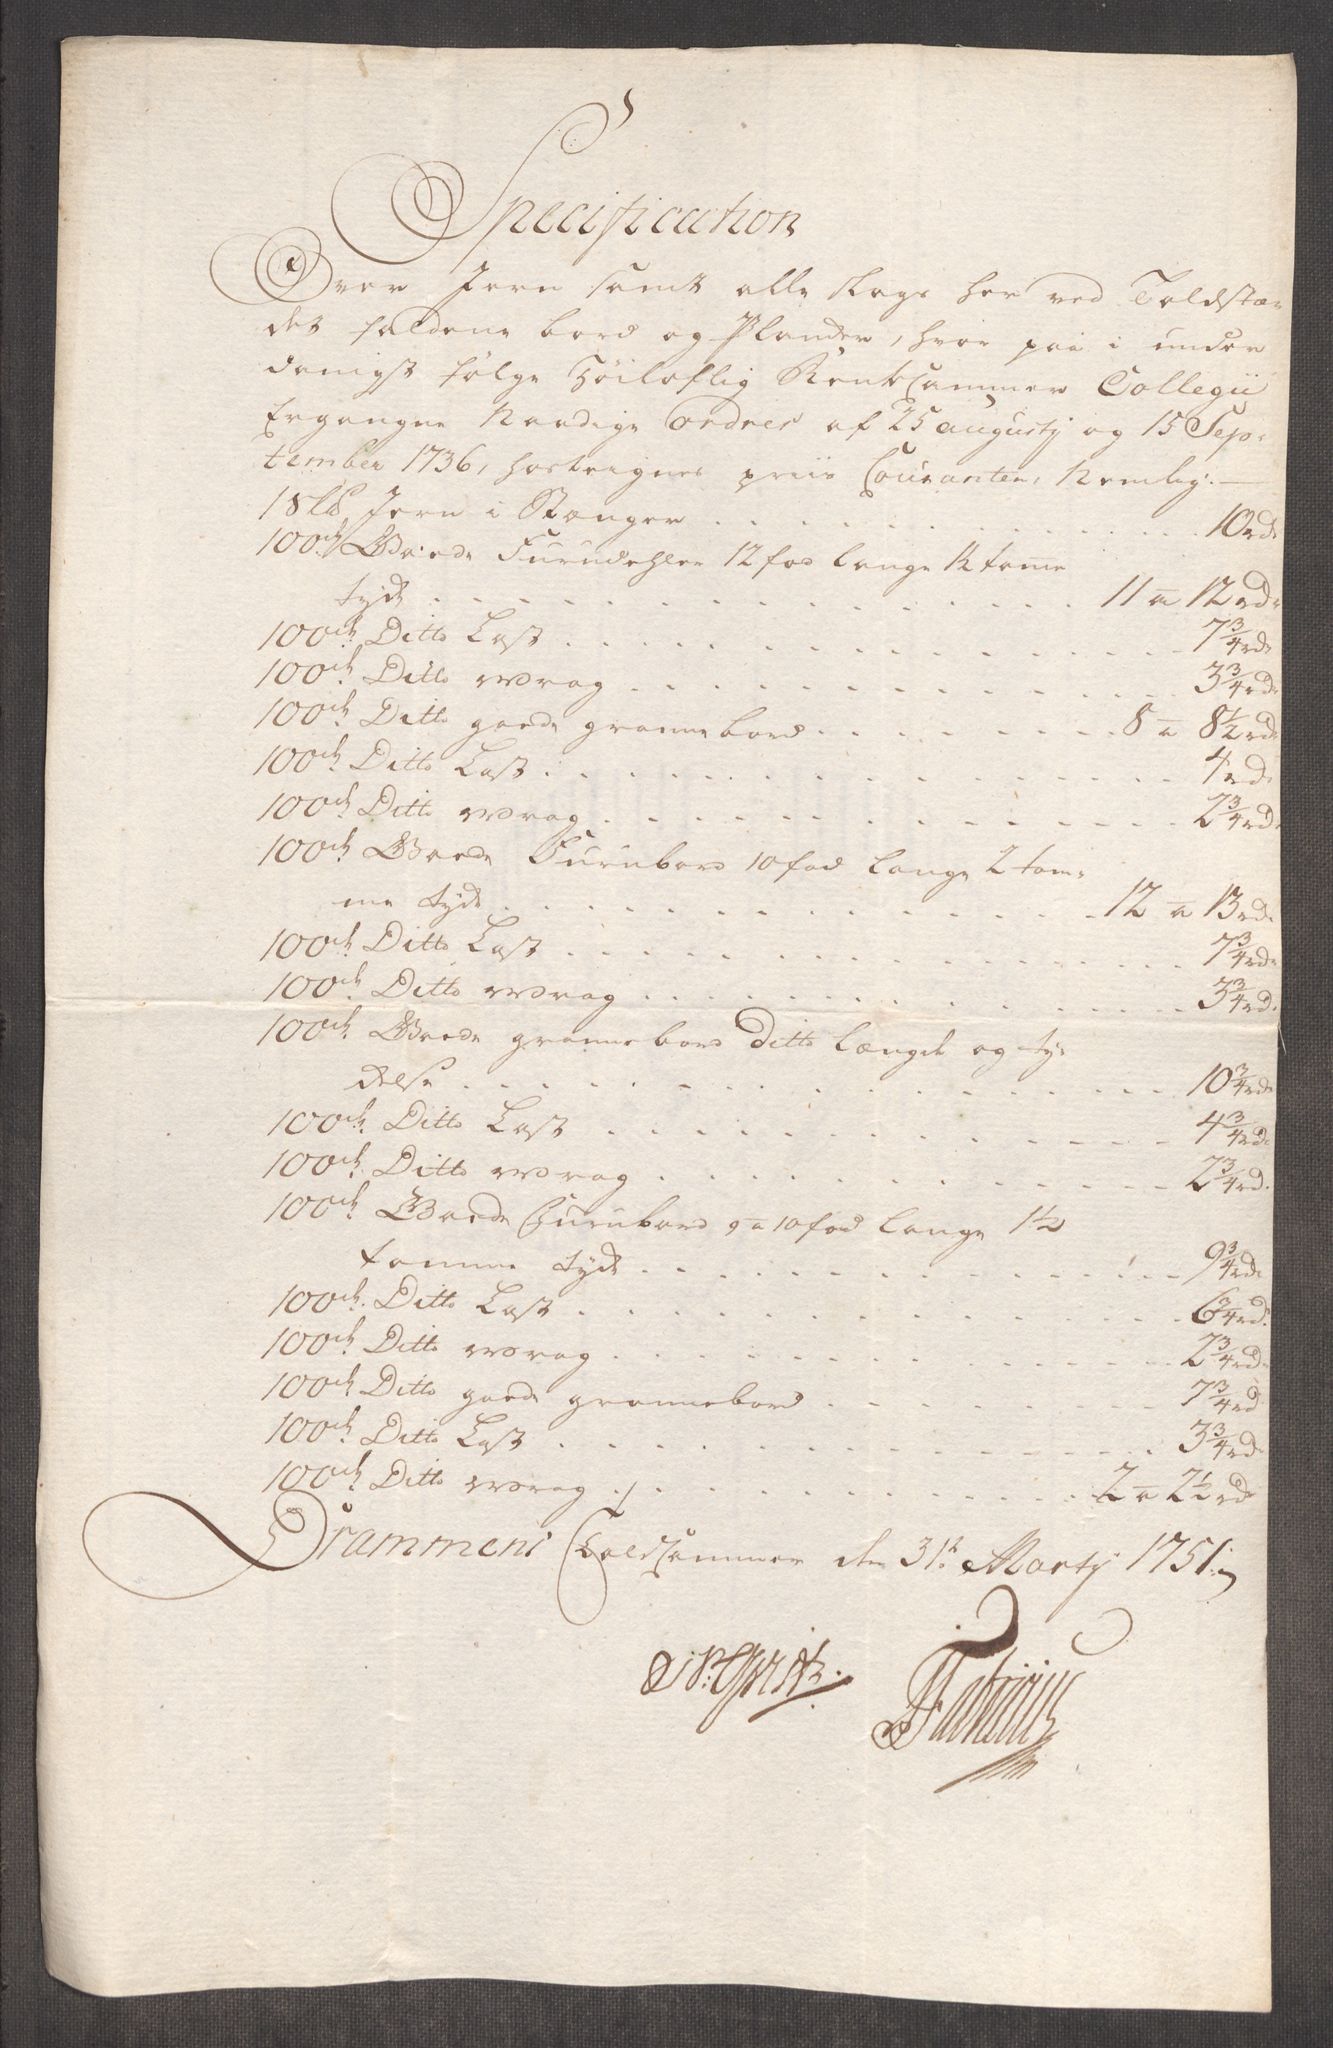 Specification
Over Jern samt alle slags her ved Toldstæ-
det faldene bord og Plander, hvor paa i under
danigst følge Høiloflig RenteCammer Collegii
Ergangne Naadige Ordres af 25 Augustj og 15 Sep-
tember 1736, hosteignes priis Couranten, Nemlig:
1 Sk℔ Jern i Stænger . . . 10 rd
100ch Goede Furudehler 12 fod lange 1½ tomme
tyck . . . 11 a 12 rd
100ch Ditto Last . . . 7¾ rd
100ch Ditto wrag . . . 3¾ rd
100ch Ditto goede grannebord . . . 8 a 8½ rd
100ch Ditto Last . . . 4 rd
100ch Ditto wrag . . . 2¾ rd
100ch Goede Furubord 10 fod lange 2 tom-
me tyck . . . 12 a 13 rd
100ch Ditto Last . . . 7¾ rd
100ch Ditto wrag . . . 3¾ rd
100ch Goede grannebord ditto længde og ty-
delse . . . 10¾ rd
100ch Ditto Last . . . 4¾ rd
100ch Ditto wrag . . . 2¾ rd
100ch Goede Furubord 9 a 10 fod lange 1½
tomme tyck . . . 9¾ rd
100ch Ditto Last . . . 6¾ rd
100ch Ditto wrag . . . 2¾ rd
100ch Ditto goede grannebord . . . 7¾ rd
100ch Ditto Last . . . 3¾ rd
100ch Ditto wrag . . . 2 a 2½ rd
Drammens ToldCammer den 31te Martij 1751
Fabricius